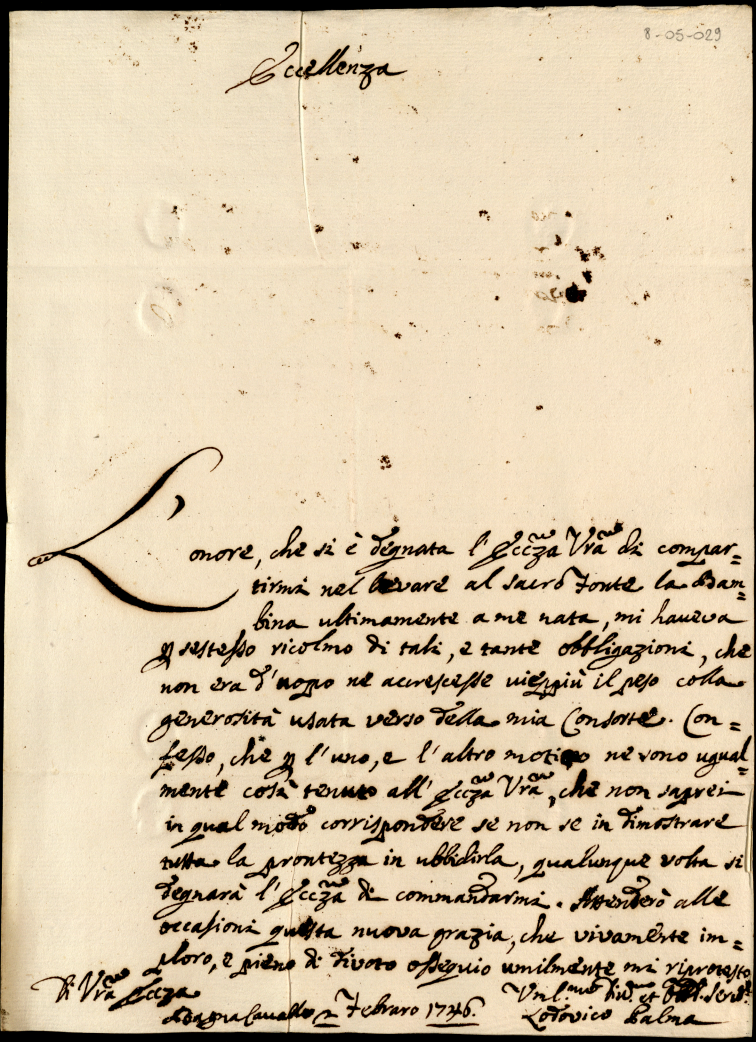 8-05-029
Eccellenza
L'onore, che si è degnata l'Eccza Vra di compar=
tirmi nel levare al sacro Fonte la Bam=
bina ultimamente a me nata, mi haveva
p sestesso ricolmo di tali, e tante obbligazioni, che
non era d'uopo ne accrescesse vieppiù il peso colla
generosità usata verso della mia Consorte. Con=
fesso, che p l'uno, e l'altro motivo ne sono ugual=
mente così tenuto all'Eccza Vra, che non saprei
in qual modo corrispondere se non se in dimostrare
tutta la prontezza in ubbidirla, qualunque volta si
degnarà l'Eccza di commandarmi. Attenderò alle
occasioni questa nuova grazia, che vivamente im=
ploro, e pieno di divoto ossequio umilmente mi riprotesto
Di Vra Eccza
Bagnacavallo 2 Febraro 1746.
Uml.mo et Serv.
Lodovico Palma